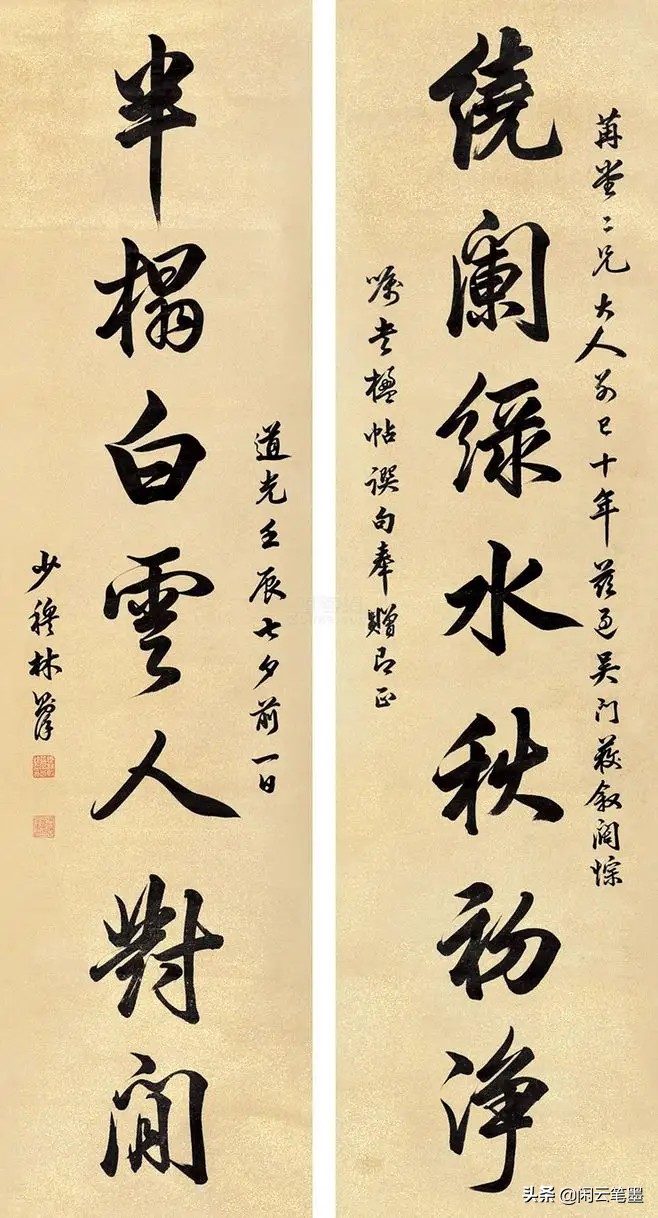 苒堂二兄大人别已十年兹过吴门藉叙阔悰
繞闌綠水秋初淨
嘱书楹帖譔句奉赠即正
道光壬辰七夕前一日
半榻白雲人對閒
少穆林
头条 @闲云笔墨